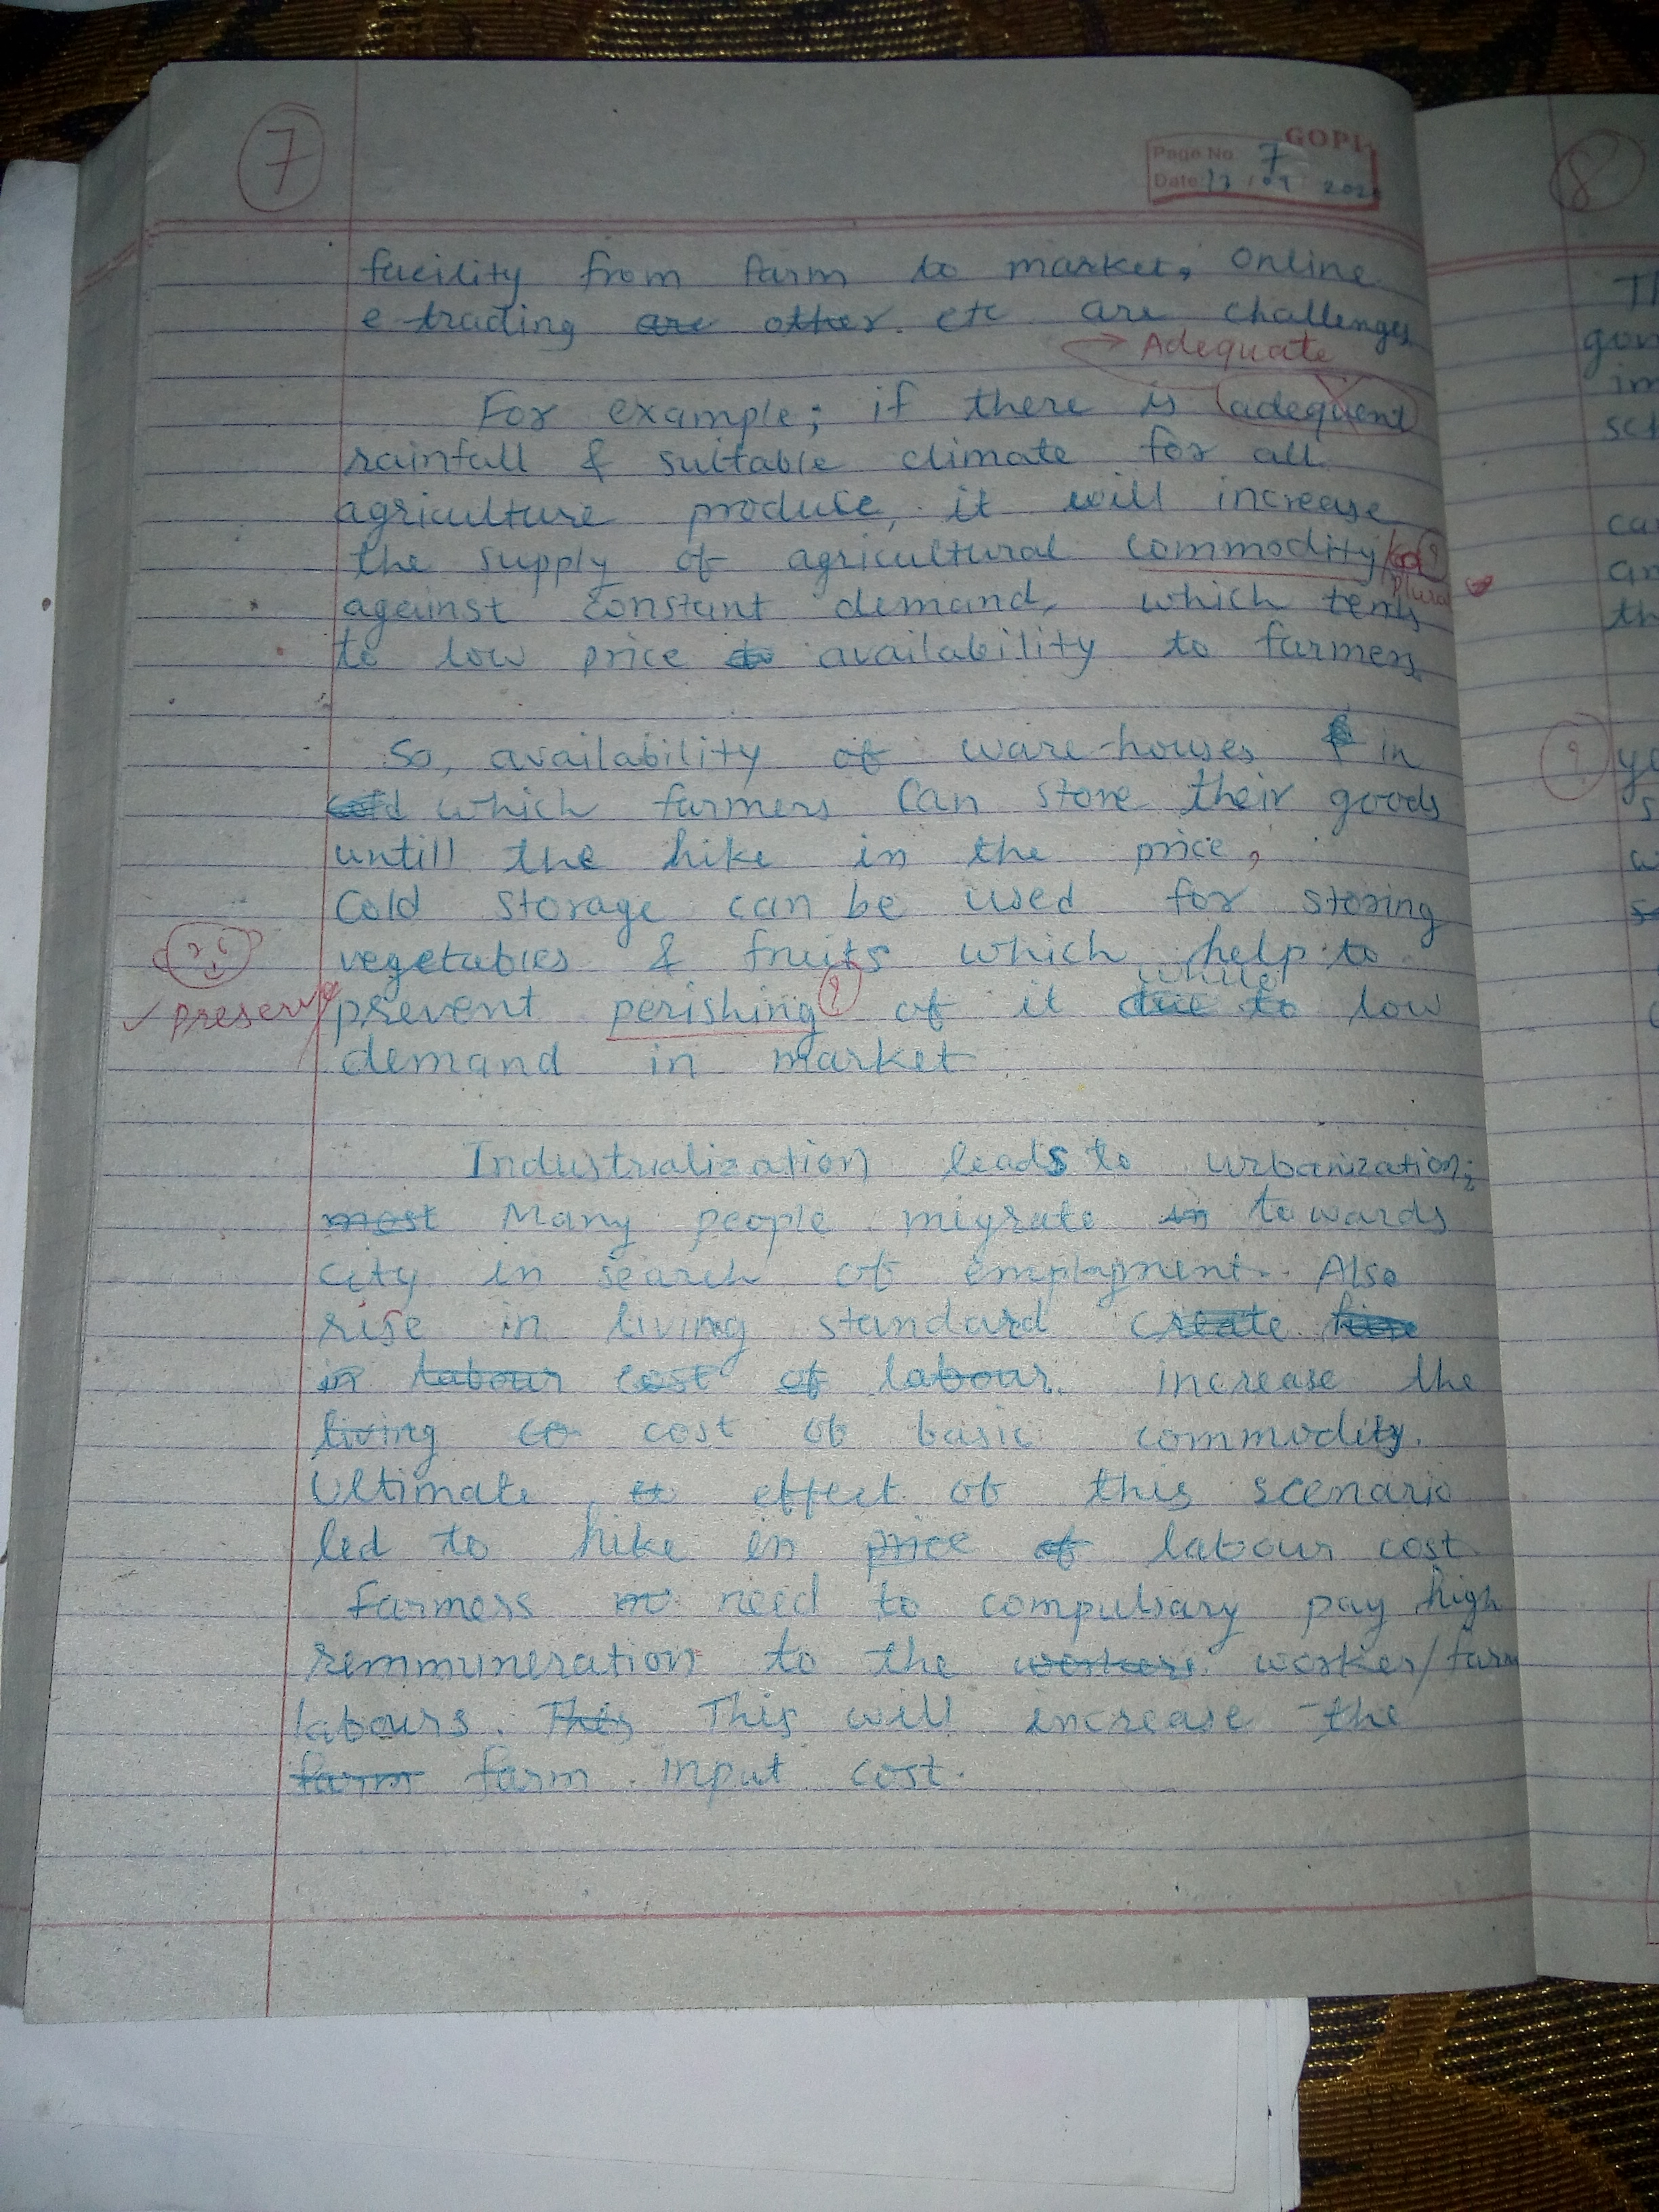 7
GOPI
Page No. 7
Date: 17 / 09
facility from farm to market, online
e-trading are other etc are challenges
Adequate
For example; if there is adequent
rainfall & suitable climate for all
agriculture produce, it will increase
the supply of agricultural commodity
plural
against constant demand, which tends
to low price to availability to farmers
So, availability of ware-houses in
cold which farmers can store their goods
untill the hike in the price,
Cold storage can be used for storing
vegetables & fruits which help to
while
preserve prevent perishing ? of it due to low
demand in market
Industrialization leads to urbanization;
most Many people migrate in towards
city in search of employment. Also
rise in living standard create
in labour cost of labour. increase the
living co cost of basic commodity.
Ultimate effect of this scenario
led to hike in price of labour cost
Farmers need to compulsary pay high
remmuneration to the workers worker/farm
labours. This This will increase the
farm farm input cost.
8
?